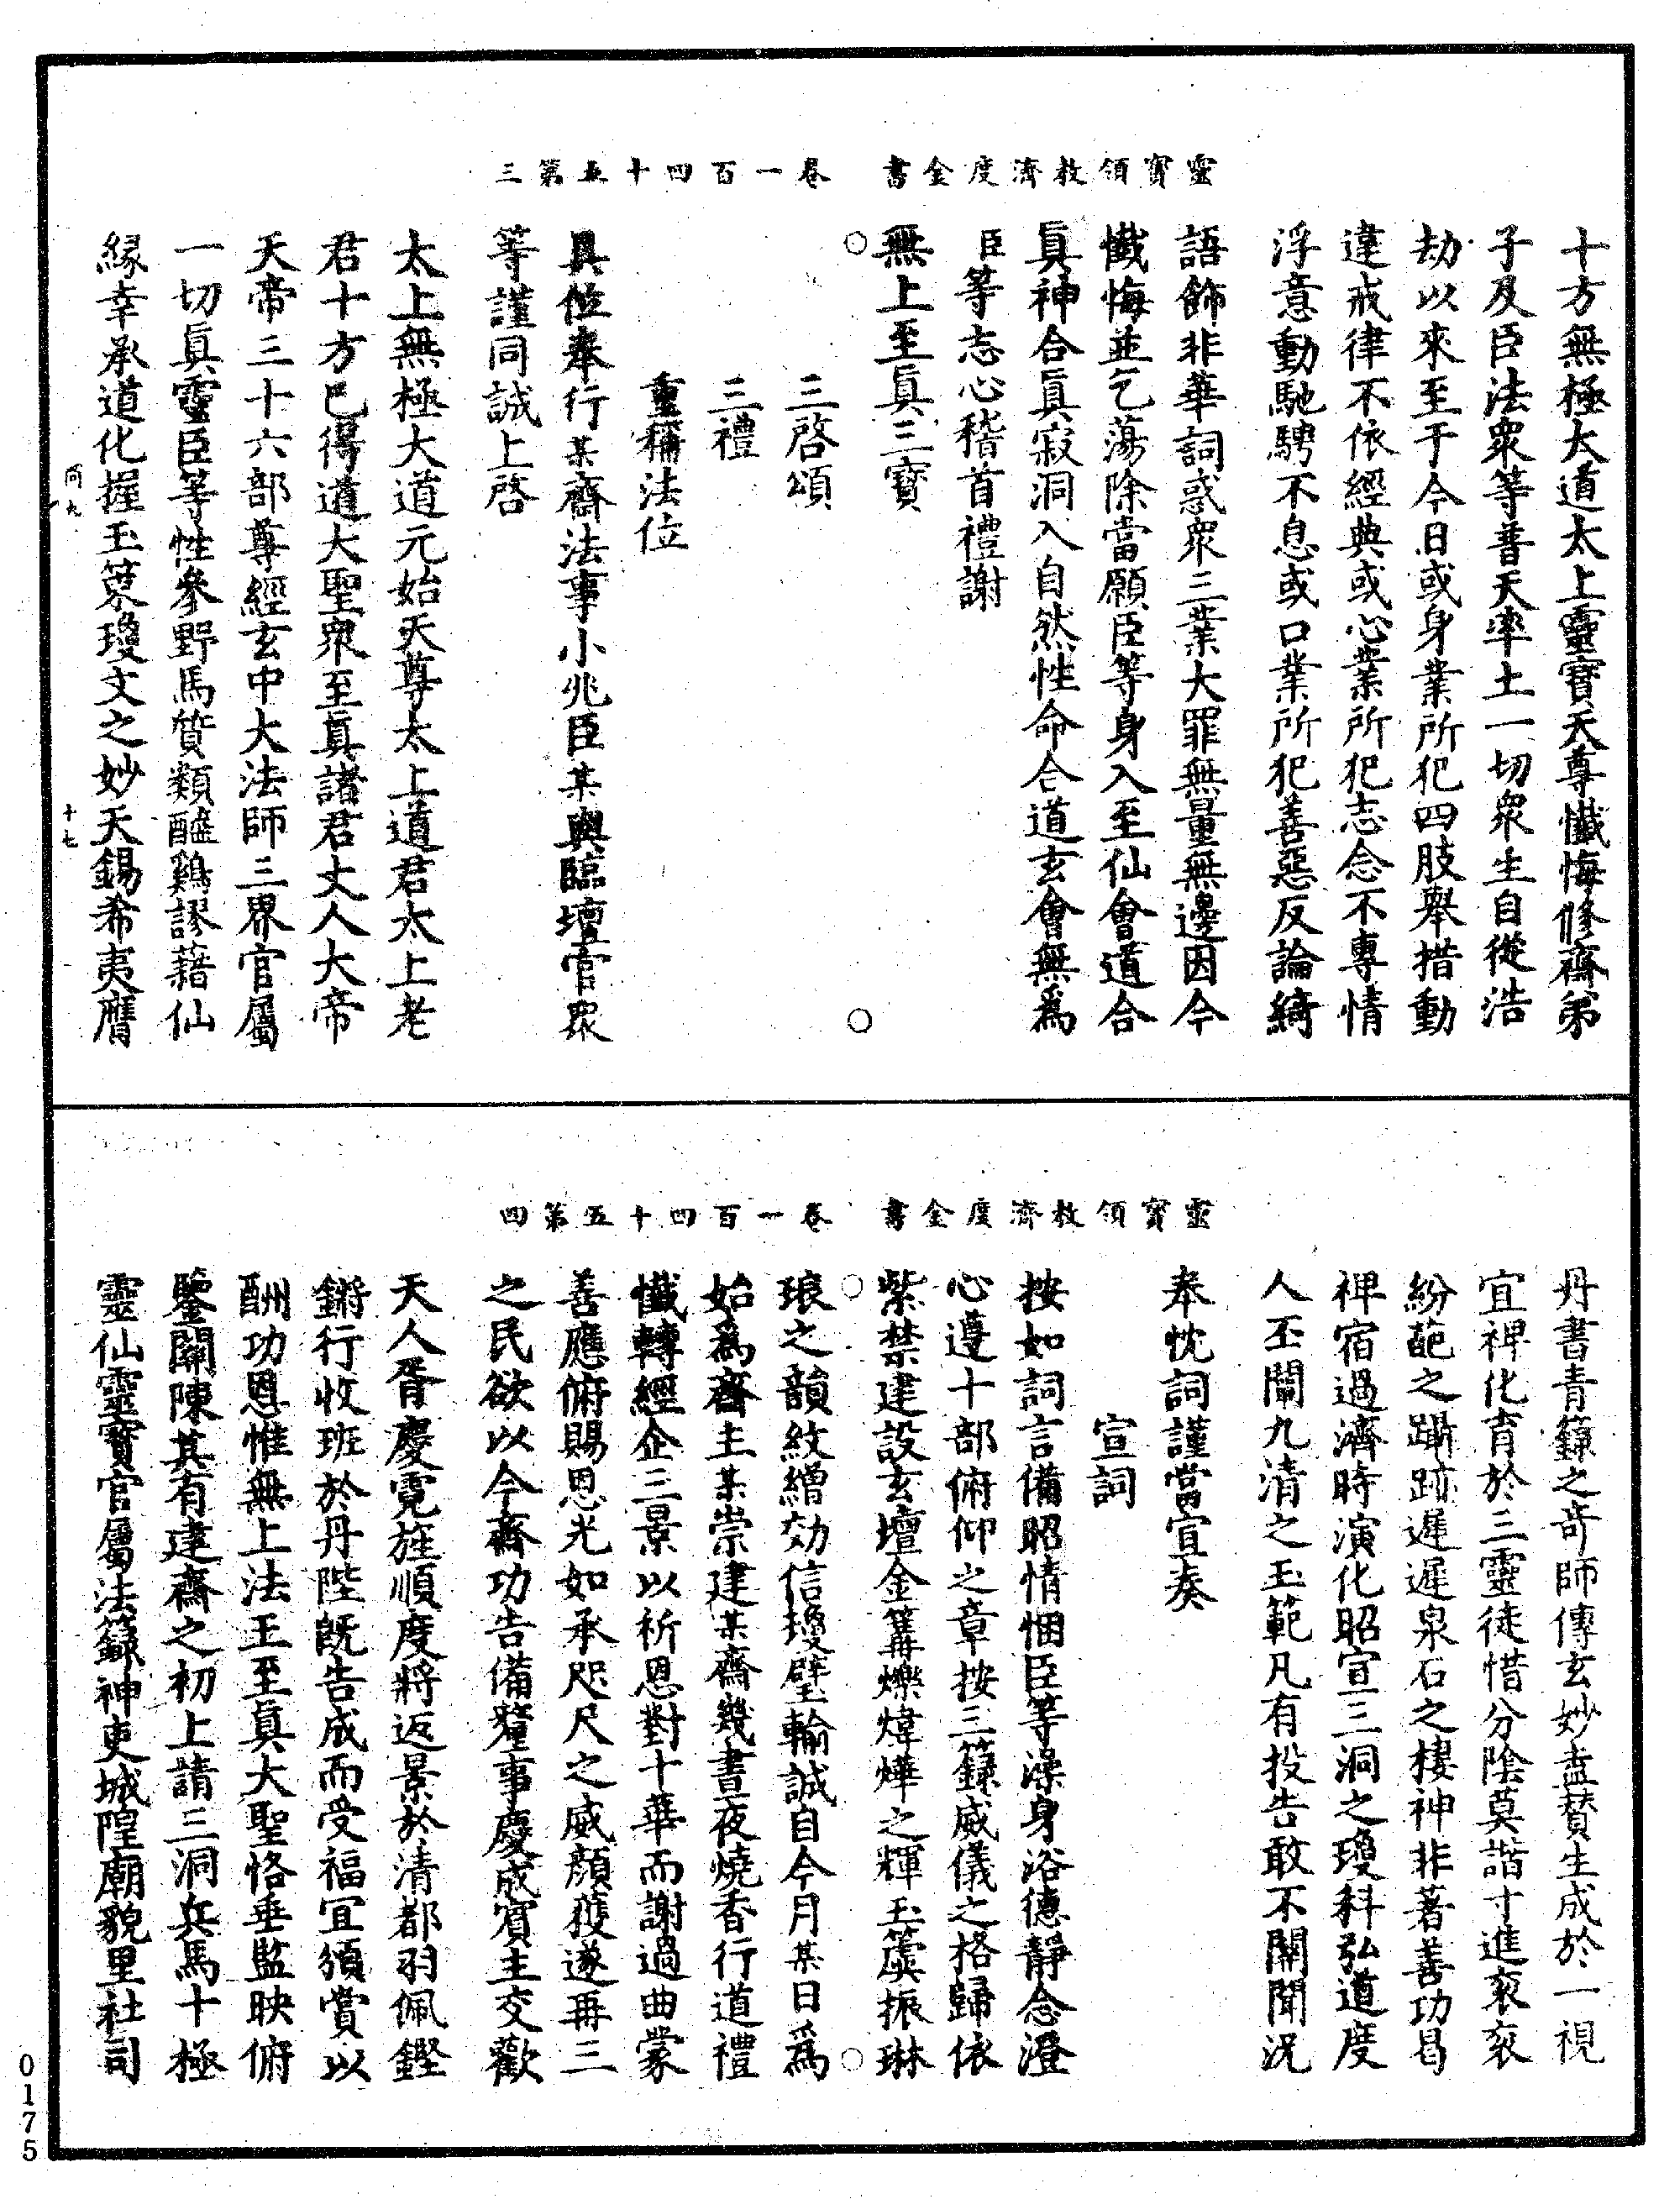 靈寶領教濟度金書　卷一百四十五第三
十方無極大道太上靈寶天尊懺悔修齋弟
子及臣法衆等普天率土一切衆生自從浩
劫以來至于今日或身業所犯四肢舉措動
違戒律不依經典或心業所犯志念不專情
浮意動馳騁不息或口業所犯善惡反論綺
語飾非華詞惑衆三業大罪無量無邊因今
懺悔並乞蕩除當願臣等身入至仙會道合
眞神合眞寂洞入自然性命合道玄會無爲
臣等志心稽首禮謝
無上至眞三寶
三啓頌
三禮
重稱法位
具位奉行某齋法事小兆臣某與臨壇官衆
等謹同誠上啓
太上無極大道元始天尊太上道君太上老
君十方已得道大聖衆至眞諸君丈人大帝
天帝三十六部尊經玄中大法師三界官屬
一切眞靈臣等性參野馬質類醯鷄謬藉仙
緣幸承道化握玉笈瓊文之妙天錫希夷膺
河九　十七
靈寶領教濟度金書　卷一百四十五第四
丹書青籙之奇師傳玄妙盍賛生成於一視
宜裨化育於三靈徒惜分陰莫諧寸進袞袞
紛葩之躡跡遲遲泉石之棲神非著善功曷
裨宿過濟時演化昭宣三洞之瓊科弘道度
人丕闡九清之玉範凡有投告敢不關聞況
奉忱詞謹當宣奏
宣詞
按如詞言備昭情悃臣等澡身浴德靜念澄
心遵十部俯仰之章按三籙威儀之格歸依
紫禁建設玄壇金篝爍煒燁之輝玉簴振琳
琅之韻紋繒効信瓊璧輸誠自今月某日爲
始爲齋主某崇建某齋幾晝夜燒香行道禮
懺轉經企三景以祈恩對十華而謝過曲蒙
善應俯賜恩光如承咫尺之威顏獲遂再三
之民欲以今齋功告備釐事慶成賓主交歡
天人胥慶霓旌順度將返景於清都羽佩鏗
鏘行收班於丹陛旣告成而受福宜頒賞以
酬功恩惟無上法王至眞大聖恪垂監映俯
鑒關陳其有建齋之初上請三洞兵馬十極
靈仙靈寶官屬法籙神吏城隍廟貌里社司
0175